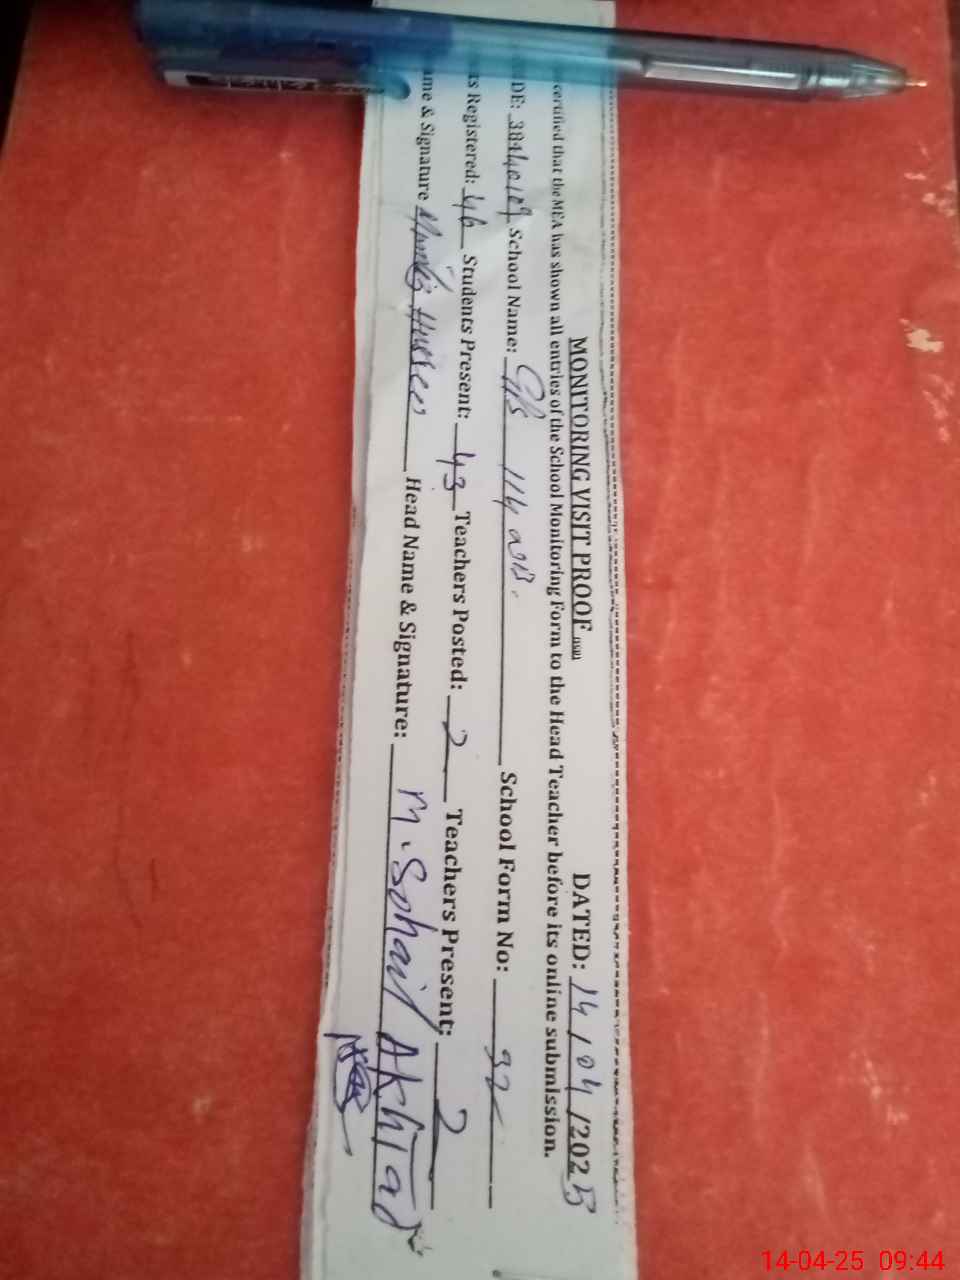 MONITORING VISIT PROOF DATED: 14/04/2025
certified that the MEA has shown all entries of the School Monitoring Form to the Head Teacher before its online submission.
DE: 38140109 School Name: G/S 114 School Form No: 92
ts Registered: 46 Students Present: 43 Teachers Posted: 2 Teachers Present: 2
ame & Signature Hussain Head Name & Signature: M. Sohail Akhtar
14-04-25 09:44